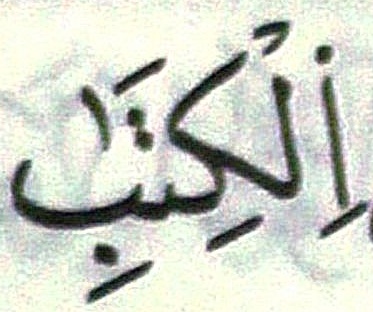 اِلْكِتَٰبِ